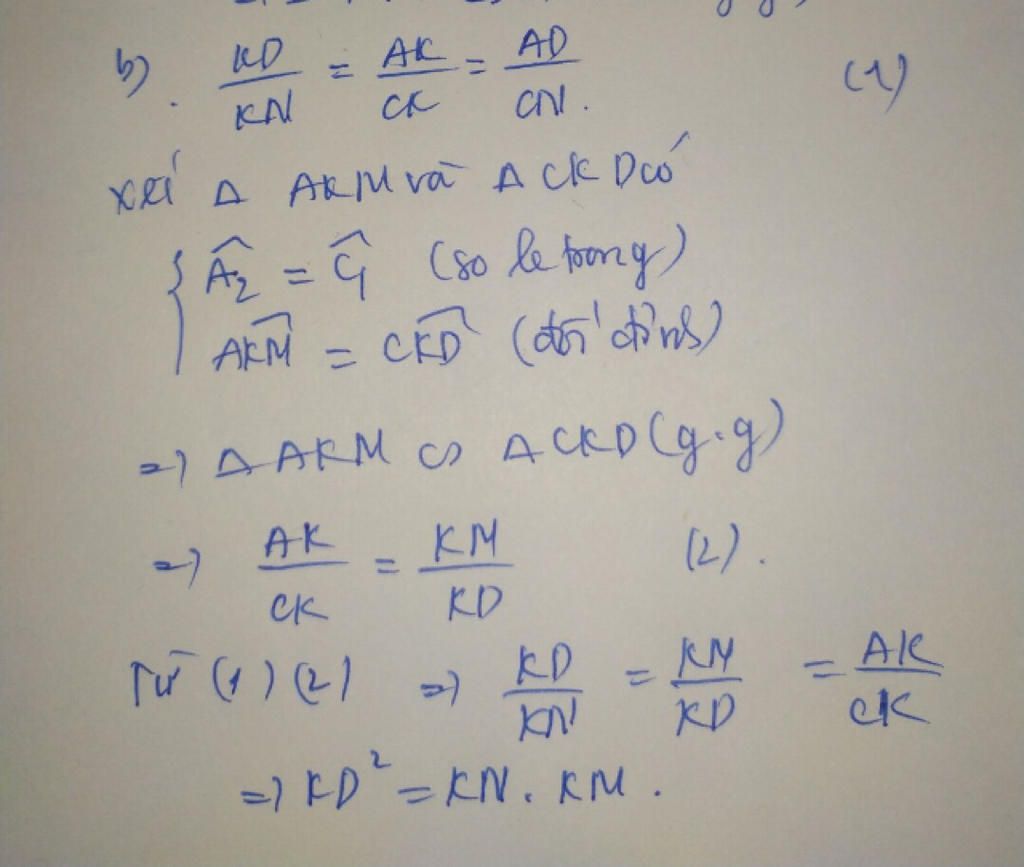 b) KD/KN = AK/CK = AD/CN. (1)
xét Δ AKM và Δ CKD có
{ Â₂ = Ĉ₁ (so le trong)
AKM̂ = CKD̂ (đối đỉnh)
=> Δ AKM ∽ Δ CKD (g.g)
=> AK/CK = KM/KD (2).
Từ (1) (2) => KD/KN = KM/KD = AK/CK
=> KD² = KN. KM.